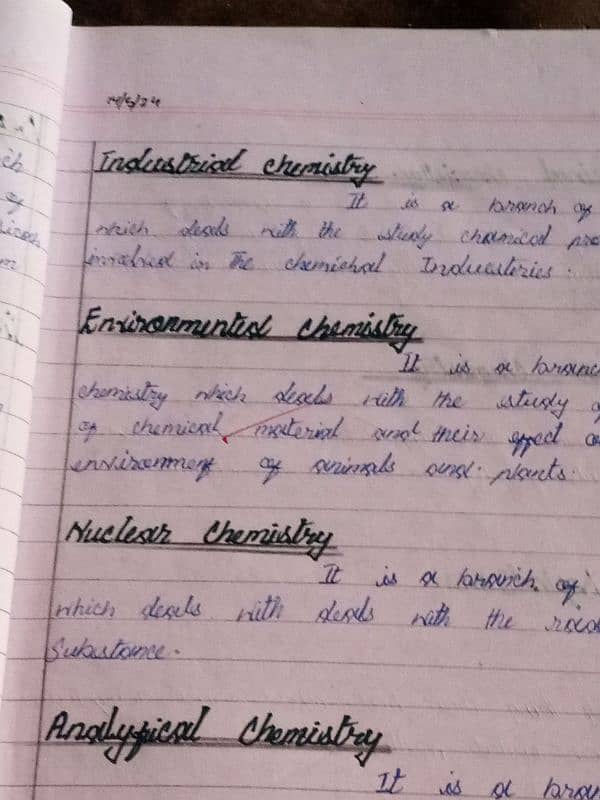 14/5/24
Industrial chemistry
It is a branch of
which deals with the study chamical pro
involved in The chemichal Industeries.
Environmental chemistry
It is a branc
chemistry which deals with the study
of chemical material and their effect
environment of animals and plants.
Nuclear Chemistry
It is a branch of
which deals with deals with the
Substance.
Analytical Chemistry
It is a bran